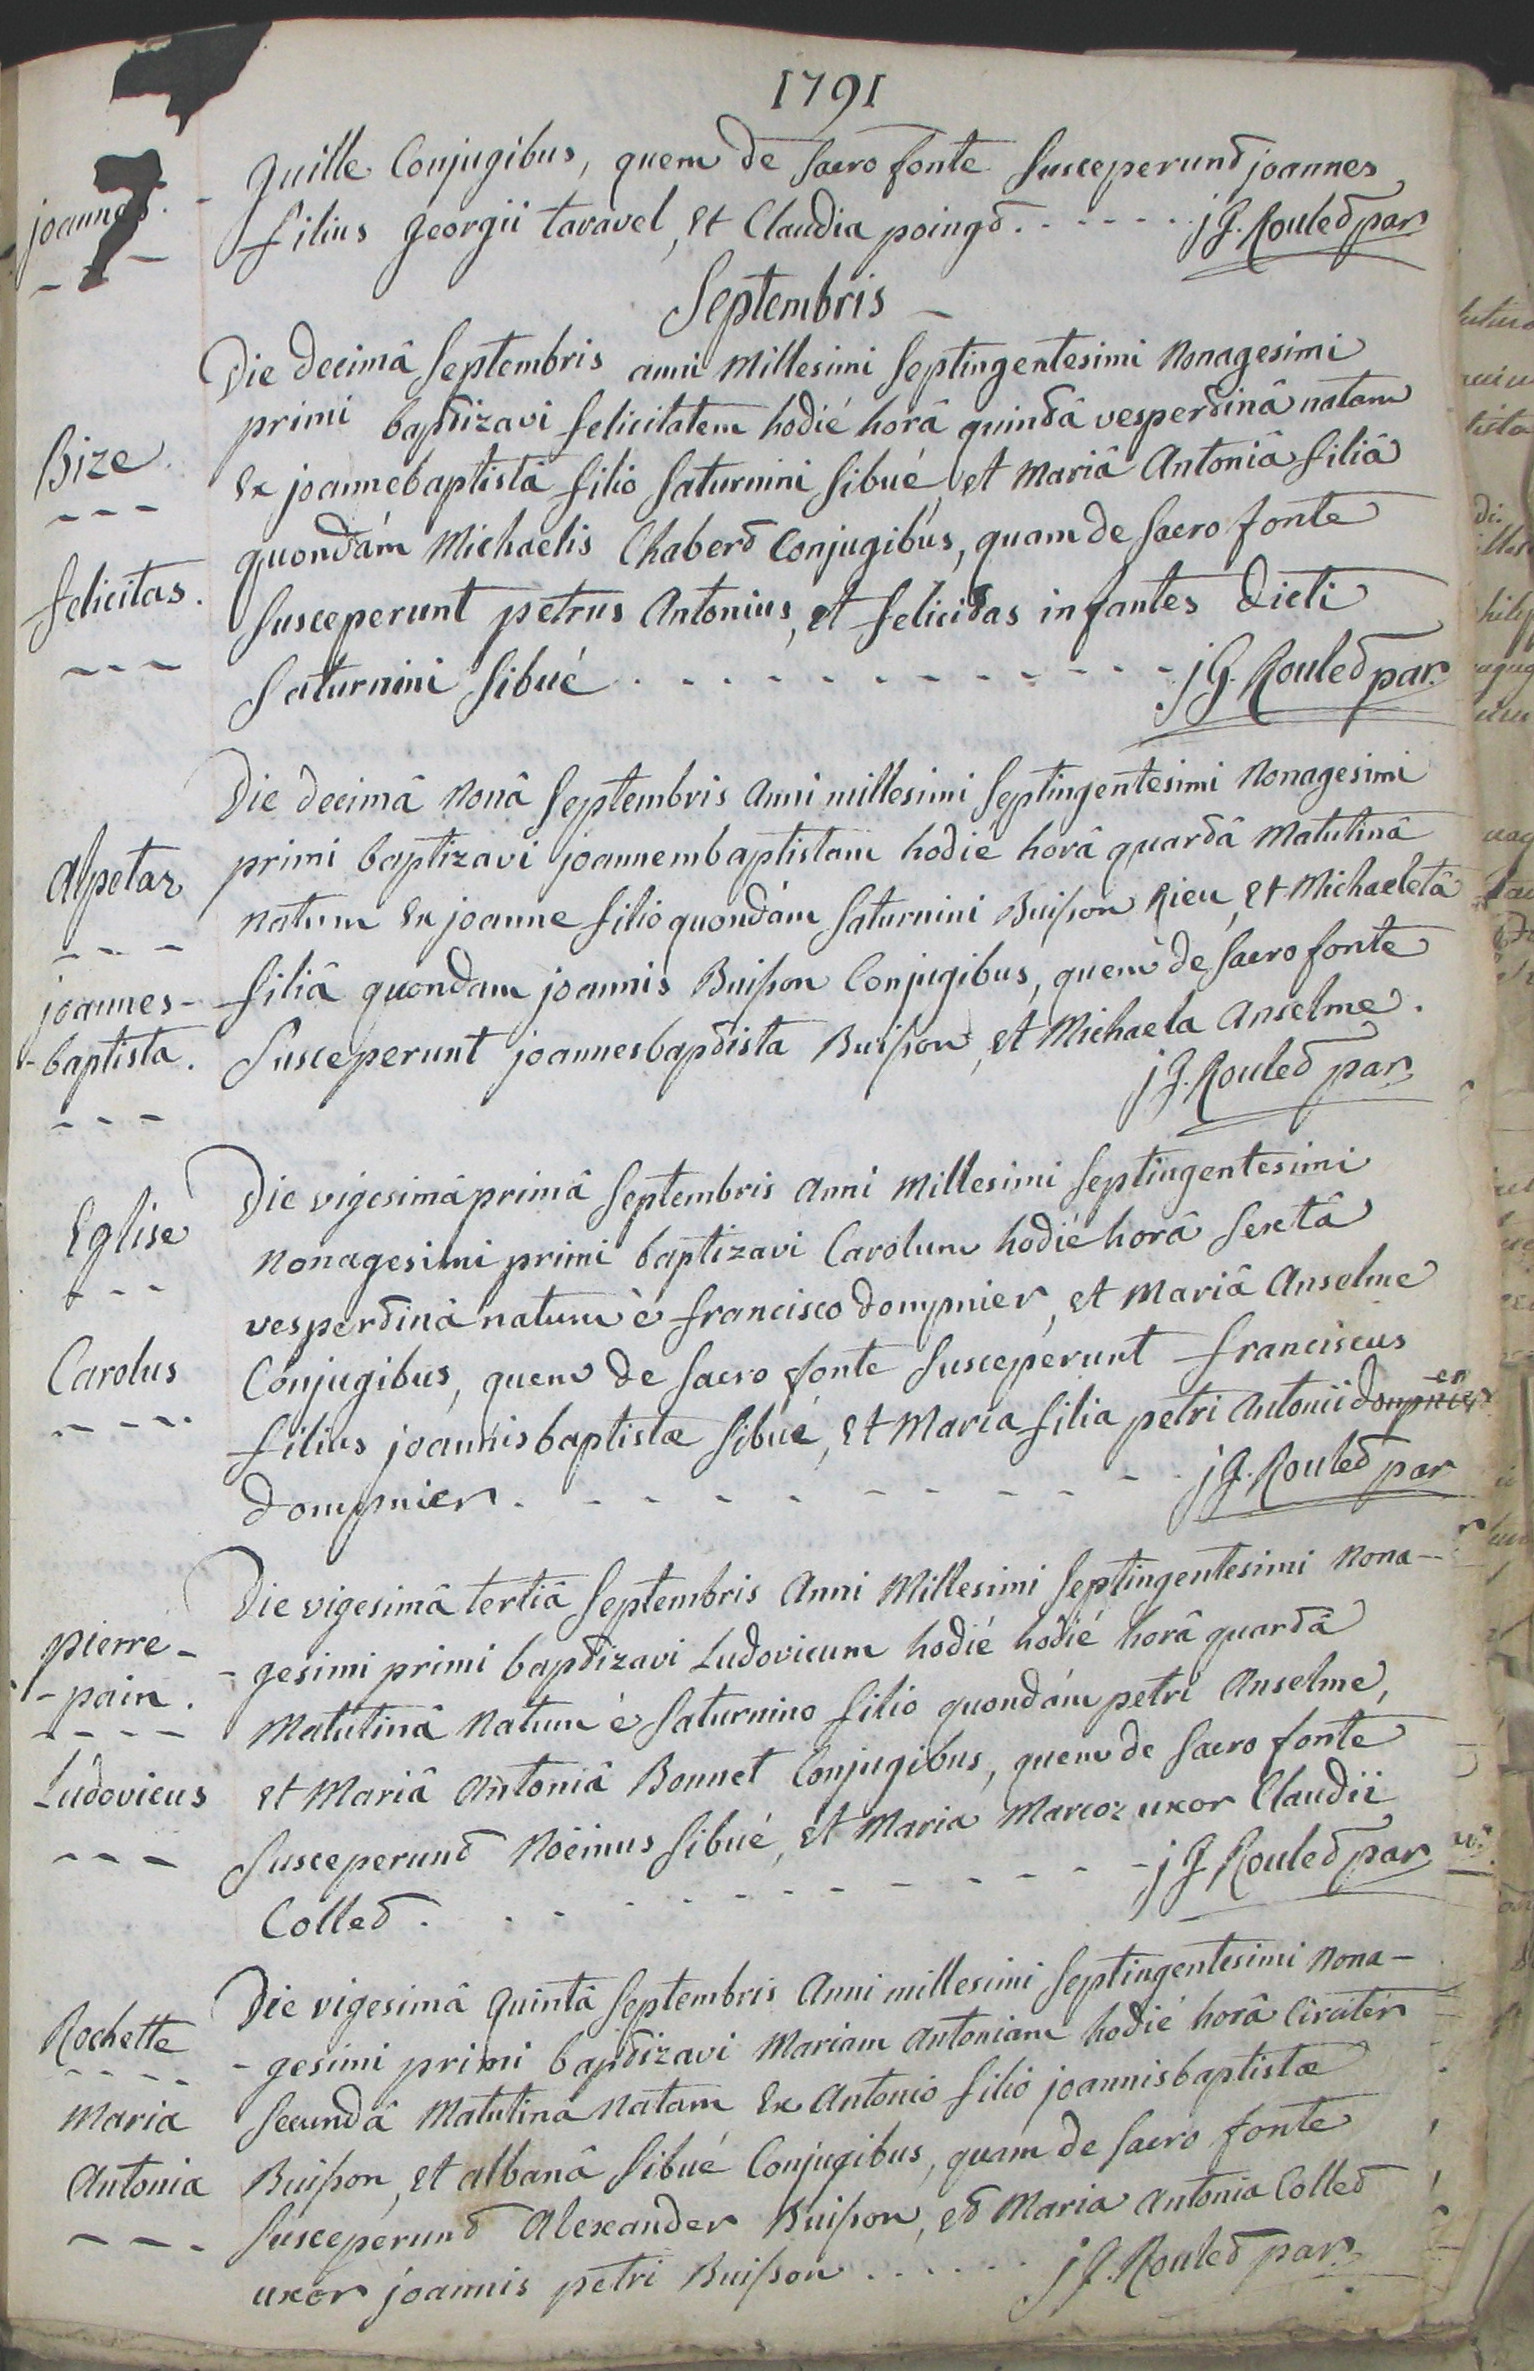 1791
joannes.
Guille Conjugibus, quem de sacro fonte susceperunt joannes
filius georgii taravel, et Claudia poingt. - - - - - j G. Roulet par
Septembris -
Bize
felicitas.
Die decimâ septembris anni millesimi septingentesimi nonagesimi
primi baptizavi felicitatem hodié horâ quintâ vespertinâ natam
ex joannebaptistâ filio saturnini sibué, et mariâ Antoniâ filiâ
quondám Michaelis Chabert conjugibus, quam de sacro fonte
susceperunt petrus Antonius, et felicitas infantes dicti
saturnini sibué - - - - - - - - - - - j G. Roulet par
Alpetaz
joannes-
-baptista.
Die decimâ nonâ septembris anni millesimi septingentesimi nonagesimi
primi baptizavi joannembaptistam hodié horâ quartâ matutinâ
natum ex joanne filio quondám saturnini Buisson Rieu, et Michaeletâ
filiâ quondam joannis Buisson Conjugibus, quem de sacro fonte
susceperunt joannesbaptista Buisson, et Michaela Anselme.
j G. Roulet par
Eglise
Carolus
Die vigesimâ primâ septembris anni millesimi septingentesimi
nonagesimi primi baptizavi Carolum hodié horâ sextâ
vespertinâ natum è francisco dompnier, et mariâ Anselme
Conjugibus, quem de sacro fonte susceperunt franciscus
filius joannisbaptistæ sibué, et maria filia petri Antonii dompnier
dompnier. - - - - - - - - - j G. Roulet par
pierre-
-pain.
Ludovicus
Die vigesimâ tertiâ septembris Anni Millesimi septingentesimi nona-
-gesimi primi baptizavi Ludovicum hodié hodié horâ quartâ
matutinâ natum é saturnino filio quondám petri Anselme,
et mariâ Antoniâ Bonnet Conjugibus, quem de sacro fonte
susceperunt Noëinus sibué, et maria marcoz uxor Claudii
Collet. - - - - - - - - - j G Roulet par
Rochette
maria
Antonia
Die vigesimâ quintâ septembris Anni millesimi septingentesimi nona-
-gesimi primi baptizavi mariam antoniam hodié horâ circitér
secundâ matutina natam ex Antonio filio joannisbaptistæ
Buisson, et albanâ sibué Conjugibus, quam de sacro fonte
susceperunt Alexander Buisson, et maria antonia Collet
uxor joannis petri Buisson . . . . . j G. Roulet par